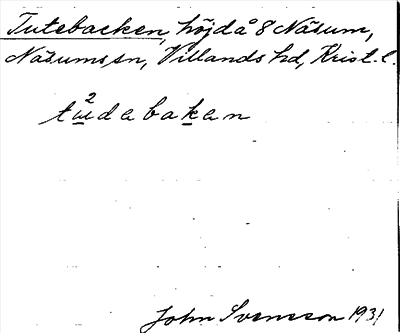 Tutebacken, höjd å 8 Näsum,
Näsums sn, Villands hd, Krist. l.
tu²dabakan
John Svensson 1931